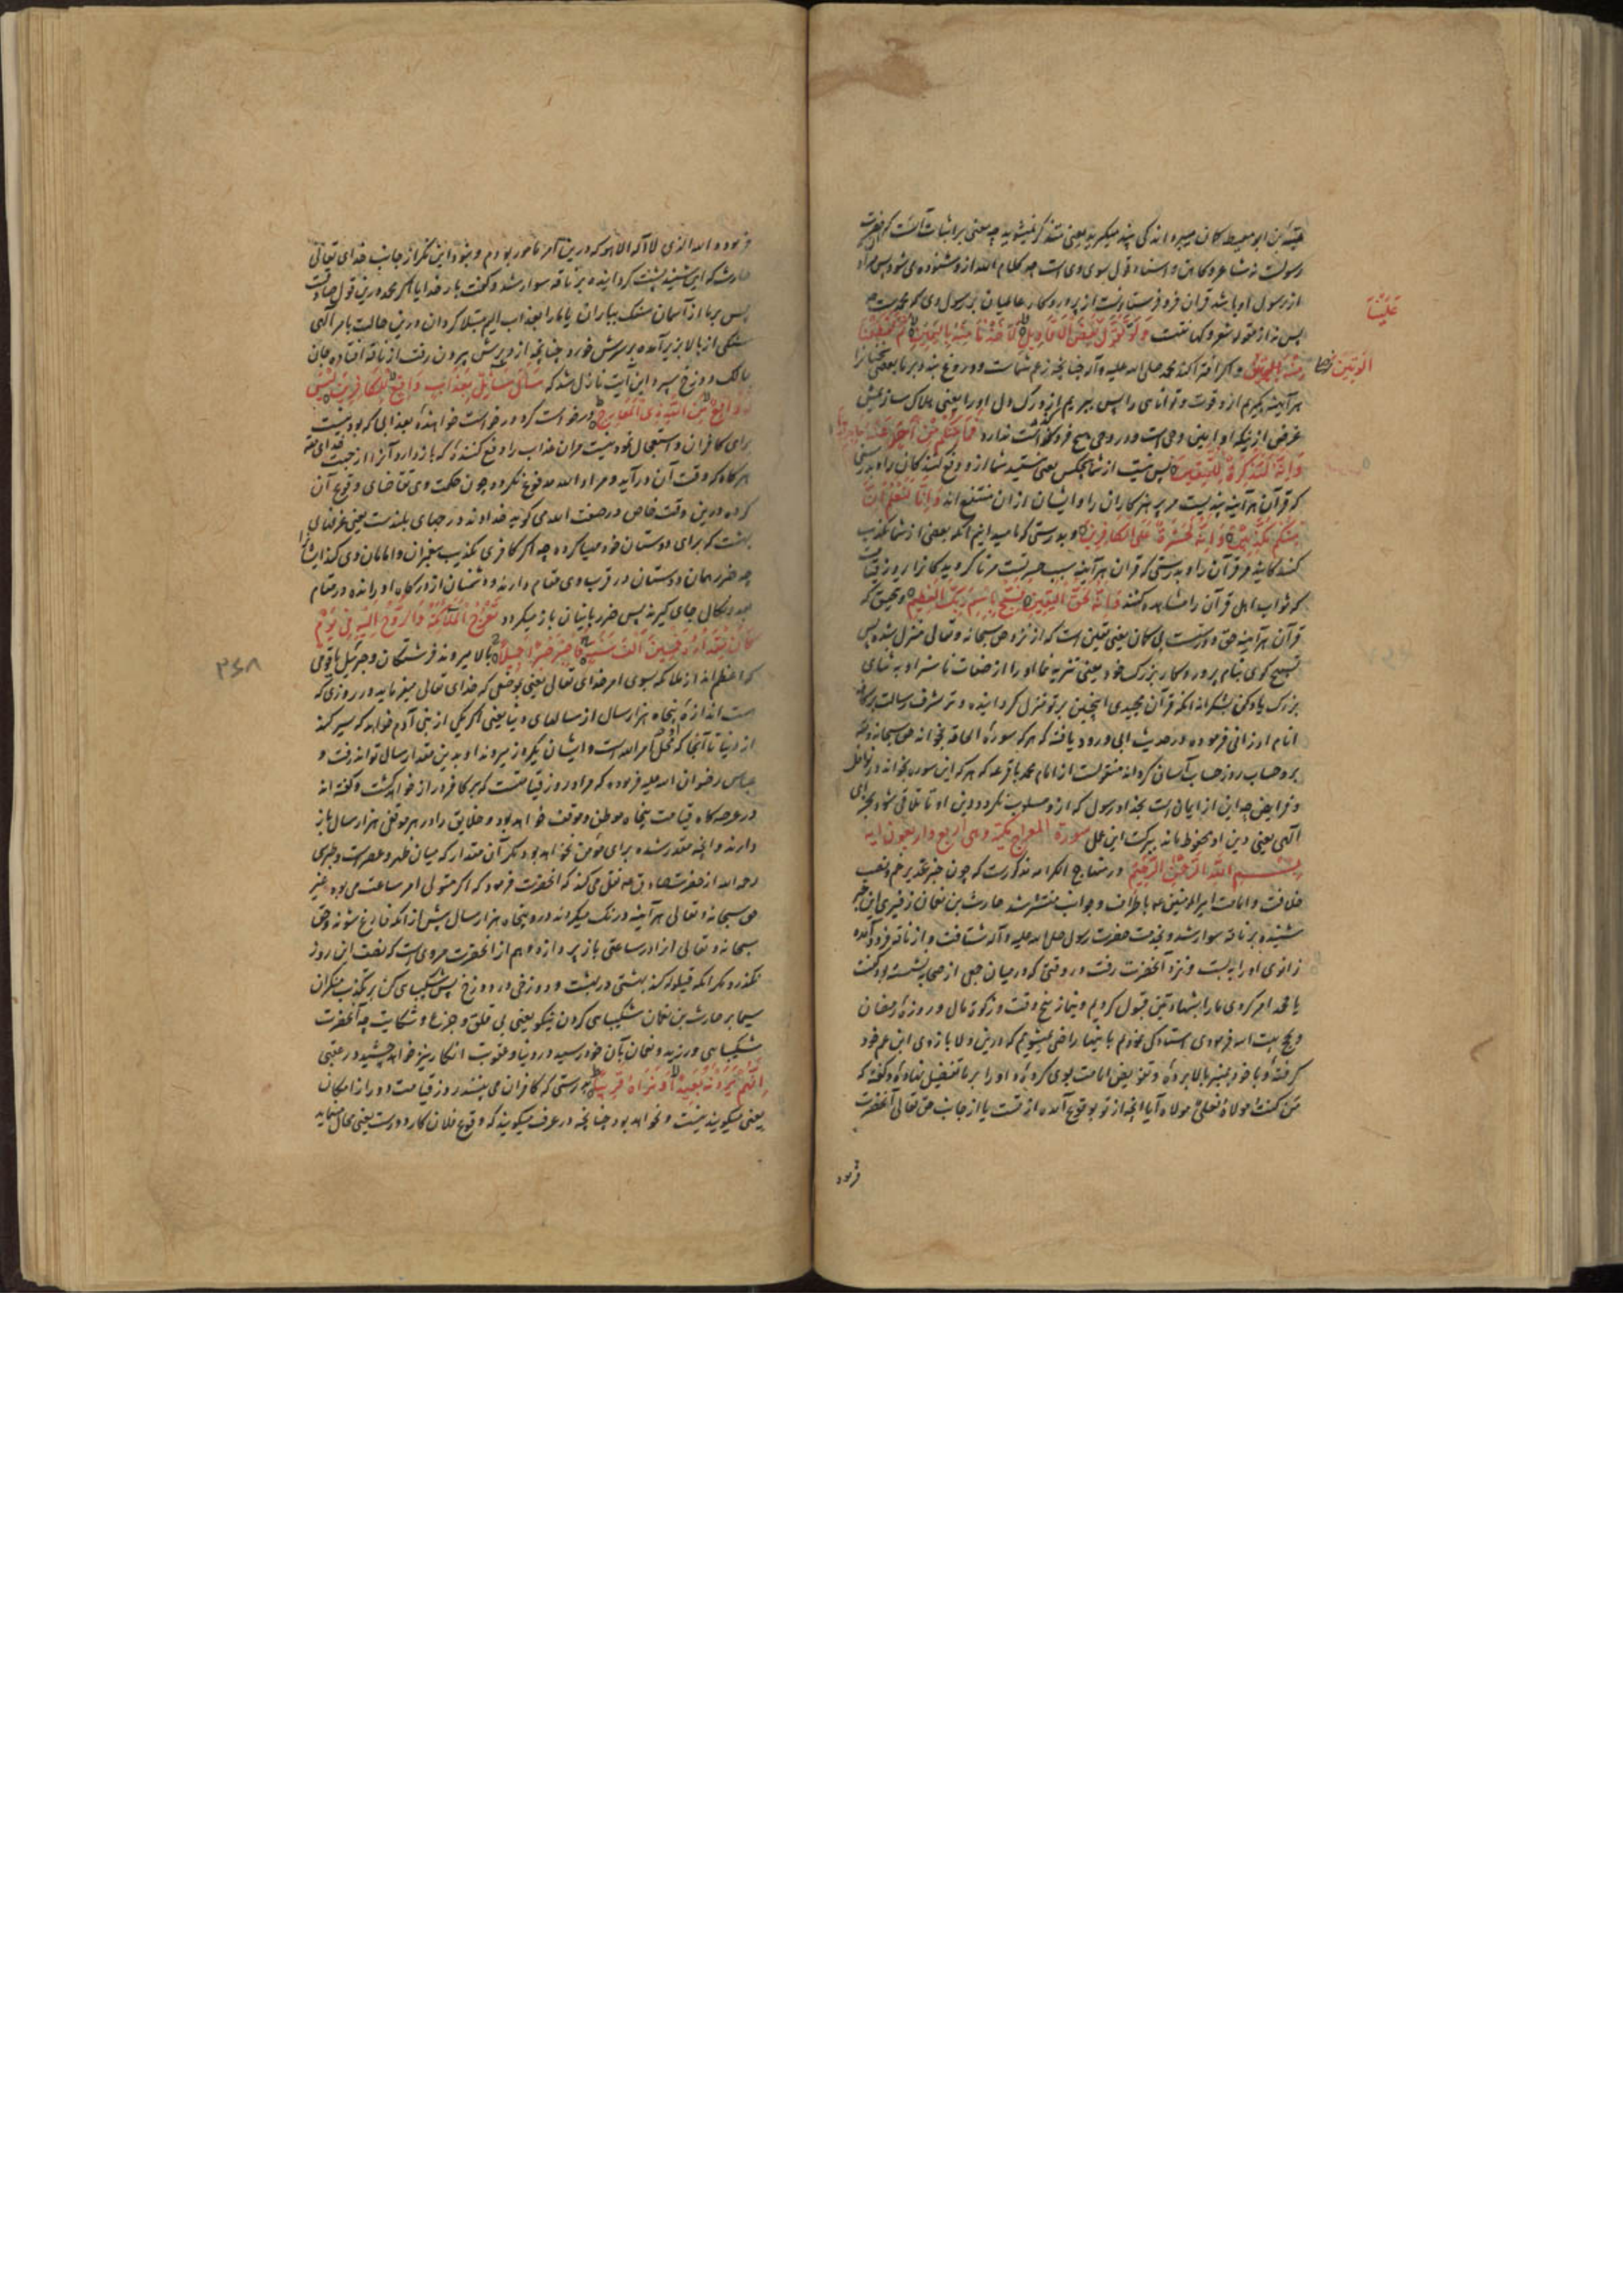 عقبة بن ابو معیط کاهن میبرد اندکی پند میگیرید یعنی متذکر نمیشوید چه معنی بر اثبات آنست که حضرت
رسولست نه شاعر و کاهن و اسناد قول بسوی وی است چه کلام الله از و شنوده می شود پس مراد
از رسول او باشد قران فرو فرستادنست از پروردکار عالمیان بر رسول وی که محمدست
پس نه از مقوله شعر و کهانتست وَلَوْ تَقَوَّلَ عَلَيْنَا بَعْضَ الْاَقَاوِيلِ لَاَخَذْنَا مِنْهُ بِالْيَمِينِ ثُمَّ لَقَطَعْنَا
مِنْهُ الْوَتِينَ و اکر افترا کند محمد صلی الله علیه و آله چنانچه زعم شماست و دروغ بندد بر ما بعضی سخنان را
هر آینه بگیریم ازو قوت و توانائی را پس ببریم ازو رک دل او را یعنی هلاک سازیمش
غرض از نیکه او امین وحی است و در وحی هیچ فرو گذاشت ندارد فَمَا مِنْكُمْ مِنْ اَحَدٍ عَنْهُ حَاجِزِينَ
وَاِنَّهُ لَتَذْكِرَةٌ لِلْمُتَّقِينَ پس نیست از شما هیچکس یعنی نیستید شما ازو دفع کنندکان و بدرستی
که قرآن هر آینه پندیست مر پرهیزکاران را و ایشان ازان منتفع اند وَاِنَّا لَنَعْلَمُ اَنَّ
مِنْكُمْ مُكَذِّبِينَ وَاِنَّهُ لَحَسْرَةٌ عَلَى الْكَافِرِينَ و بدرستی که ما میدانیم انکه بعضی از شما تکذیب
کنندکانید مر قرآن را و بدرستی که قران هر آینه سبب حسرتست مر ناکرویدکانرا روز قیامت
که ثواب اهل قرآن را مشاهده کنند وَاِنَّهُ لَحَقُّ الْيَقِينِ فَسَبِّحْ بِاسْمِ رَبِّكَ الْعَظِيمِ و تحقیق که
قرآن هر آینه حق و راست بی گمان یعنی یقین است که از نزد حق سبحانه و تعالی منزل شده پس
تسبیح کوی بنام پروردکار بزرک خود یعنی تنزیه نما او را از صفات ناسزا و به ثنای
بزرک یاد کن بشکرانه انکه قرآن مجیدی اینچنین بر تو منزل کردانیده و ترا بشرف رسالت بر کافه
انام ارزانی فرموده در حدیث ابی ورود یافته که هر که سورهٔ الحاقه بخواند حق سبحانه و تعالی
برو حساب روز حساب آسان کرداند منقولست از امام محمد باقر ع که هر که این سوره بخواند در نوافل
و فرایض چه این از ایمان است بخدا و رسول که ازو مسلوب نکردد دین او تا تلاقی شود بجزای
آلهی یعنی دین او محفوظ ماند ببرکت این عمل سورة المعارج مکیة و هی اربع و اربعون ایه
بسم الله الرحمن الرحیم در منهاج الکرامه مذکورست که چون خبر غدیر خم و نصب
خلافت و امامت امیر المؤمنین ع باطراف و جوانب منتشر شد حارث بن نعمان زفیری این خبر
شنیده بر ناقه سوار شد و بخدمت حضرت رسول صلی الله علیه و آله شتافت و از ناقه فرود آمده
زانوی او را ببست و نزد آنحضرت رفت در وقتی که در میان جمعی از صحابه نشسته بود گفت
یا محمد امر کردی ما را بشهادتین قبول کردیم و بنماز پنج وقت و زکوة مال و روزهٔ رمضان
و حج بیت الله فرمودی استادکی نمودیم باینها راضی نمیشویم که درین ولا بازوی ابن عم خود
کرفته و با خود بمنبر بالا برده و تفویض امامت بوی کرده و او را بر ما تفضیل نهاده و گفته که
من کنت مولاه فعلی مولاه آیا انچه از تو بوقوع آمده از تست یا از جانب حق تعالی آنحضرت
فرمود
عَلَيْنَا
الْوَتِينَ
فرمود والله الذی لا اله الا هو که درین امر مامور بودم و نبود این مکر از جانب خدای تعالی
حارث که این شنید پشت کردانیده بر ناقه سوار شد و گفت بار خدایا اگر محمد درین قول صادقست
پس بر ما از آسمان سنک بباران یا ما را بعذاب الیم مبتلا کردان درین حالت بامر آلهی
سنکی از بالا بزیر آمده بر سرش خورد چنانچه از دبرش بیرون رفت از ناقه افتاده جان
بمالک دوزخ سپرد این آیت نازل شد که سَاَلَ سَائِلٌ بِعَذَابٍ وَاقِعٍ لِلْكَافِرِينَ لَيْسَ
لَهُ دَافِعٌ مِنَ اللَّهِ ذِي الْمَعَارِجِ درخواست کرد درخواست خواهندهٔ بعذابی که بودنیست
برای کافران و استعجال نمود نیست مران عذاب را دفع کنندهٔ که بازدارد آنرا از جهت خدای چه
هر کاه که وقت آن درآید و مراد الله مدفوع نکردد چون حکمت وی تقاضای وقوع آن
کرده درین وقت خاص در صفت الله می کوید خداوند درجهای بلندست یعنی غرفهای
بهشت که برای دوستان خود مهیا کرده چه اکر کافری تکذیب پیغمبران و امامان وی کند ایشانرا
چه ضرر همان دوستان در قرب وی مقام دارند و دشمنان از درکاه او رانده در مقام
بعد و نکال جای گیرند پس ضرر باینان باز میکردد تَعْرُجُ الْمَلَائِكَةُ وَالرُّوحُ اِلَيْهِ فِي يَوْمٍ
كَانَ مِقْدَارُهُ خَمْسِينَ اَلْفَ سَنَةٍ فَاصْبِرْ صَبْرًا جَمِيلًا بالا میروند فرشتکان و جبرئیل یا قومی
که اعظم اند از ملائکه بسوی امر خدای تعالی یعنی بموضعی که خدای تعالی میفرماید در روزی که
هست اندازهٔ پنجاه هزار سال از سالهای دنیا یعنی اگر یکی از بنی آدم خواهد که سیر کند
از دنیا تا آنجا که محل امر الله است و ایشان بیکروز میروند او بدین مقدار سال تواند رفت و
عباس رضوان الله علیه فرموده که مراد روز قیامتست که بر کافر دراز خواهد کشت و گفته اند
در عرصه کاه قیامت پنجاه موطن و موقف خواهد بود و خلایق را در هر موقفی هزار سال باز
دارند و آنچه مقدر شده برای مؤمن نخواهد بود مکر آن مقدار که میان ظهر و عصر است و طبرسی
رحمه الله از حضرت صادق ع نقل می کند که آنحضرت فرمود که اگر متولی امر ساعت می بود غیر
حق سبحانه و تعالی هر آینه درنک میکردند درو پنجاه هزار سال پیش از انکه فارغ شوند و حق
سبحانه و تعالی از ان در ساعتی باز پردازد و هم از انحضرت مروی است که نصف این روز
نکذرد مکر انکه قیلوله کند بهشتی در بهشت و دوزخی در دوزخ پس شکیبای کن بر تکذیب منکران
سیما بر حارث بن نعمان شکیبای کردن نیکو یعنی بی قلق و جزع و شکایت چه آنحضرت
شکیبایی ورزید و نعمان بآن خود رسید در دنیا و عقوبت انکار نیز خواهد چشید در عقبی
اِنَّهُمْ يَرَوْنَهُ بَعِيدًا وَنَرَاهُ قَرِيبًا بدرستی که کافران می بینند روز قیامت را دور از امکان
یعنی میگویند نیست و نخواهد بود چنانچه در عرف میگویند که وقوع فلان کار دورست یعنی محال مینماید
۳۶۸